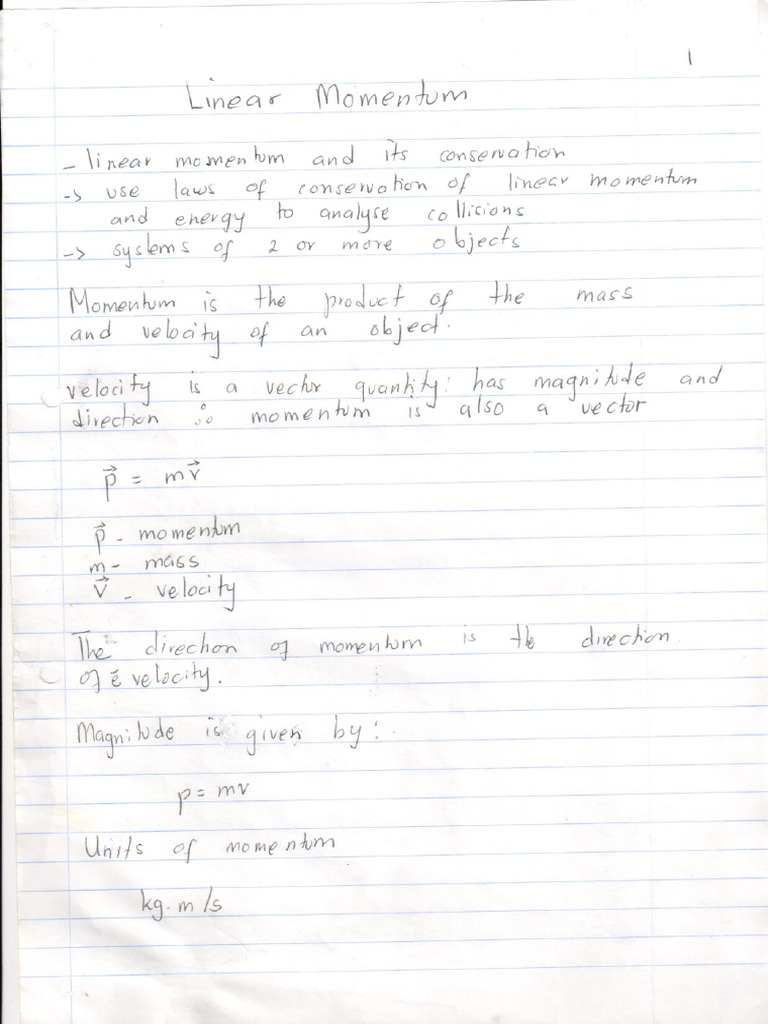 1
Linear Momentum
- linear momentum and its conservation
-> use laws of conservation of linear momentum
and energy to analyse collisions
-> systems of 2 or more objects
Momentum is the product of the mass
and velocity of an object.
velocity is a vector quantity: has magnitude and
direction ∴ momentum is also a vector
p⃗ = mv⃗
p⃗ - momentum
m - mass
v⃗ - velocity
The direction of momentum is the direction
of ē velocity.
Magnitude is given by:
p = mv
Units of momentum
kg.m/s